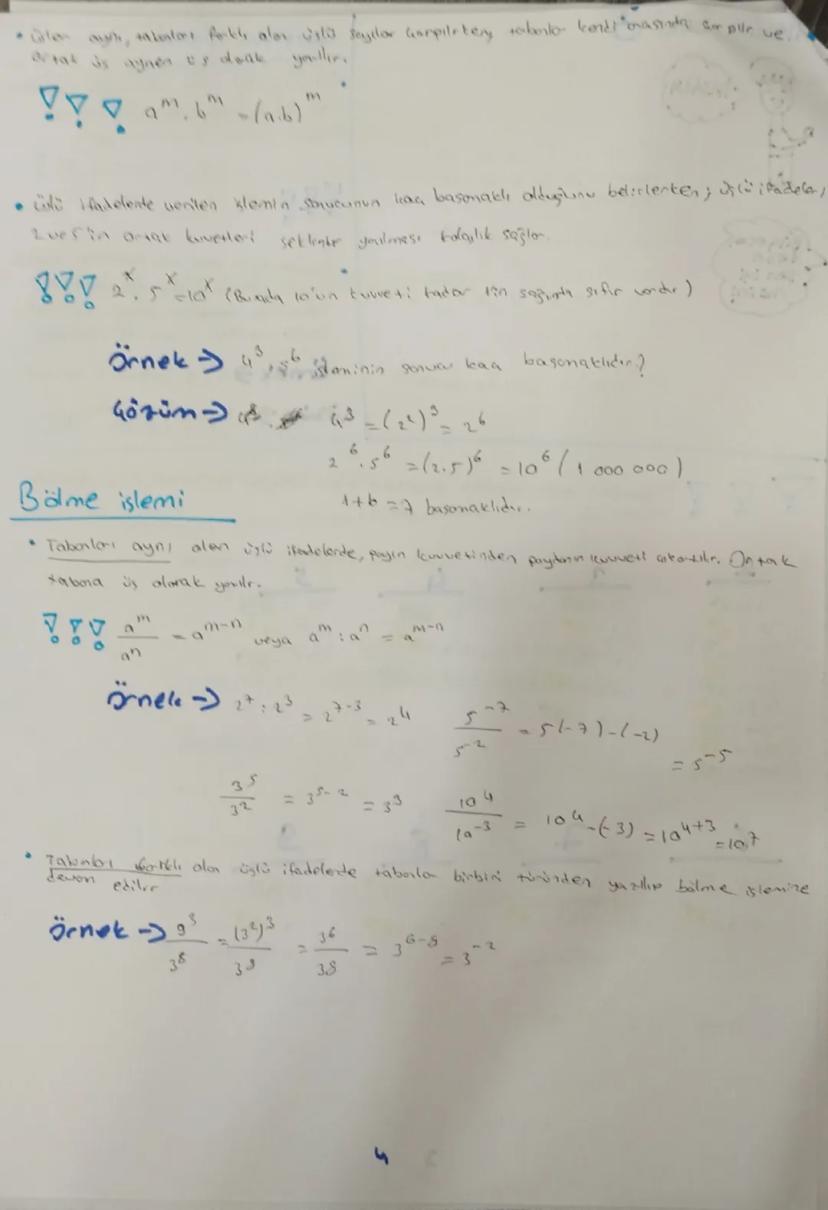 • Üsleri aynı, tabanları farklı olan üslü sayılar çarpılırken, tabanlar kendi arasında çarpılır ve
ortak üs aynen üs olarak yazılır.
!!! a^m . b^m = (a.b)^m
• Üslü ifadelerde verilen işlemin sonucunun kaç basamaklı olduğunu belirlerken; üslü ifadeler,
2 ve 5'in ortak kuvvetleri şeklinde yazılması kolaylık sağlar.
!!! 2^x . 5^x = 10^x (Burada 10'un kuvveti kadar 1'in sağında sıfır vardır)
Örnek → 4^3 . 5^6 işleminin sonucu kaç basamaklıdır?
Çözüm → 4^3 = (2^2)^3 = 2^6
2^6 . 5^6 = (2.5)^6 = 10^6 (1 000 000)
1+6 = 7 basamaklıdır.
Bölme işlemi
• Tabanları aynı olan üslü ifadelerde, payın kuvvetinden paydanın kuvveti çıkartılır. Ortak
tabana üs olarak yazılır.
!!! a^m / a^n = a^m-n veya a^m : a^n = a^m-n
Örnek → 2^7 : 2^3 = 2^7-3 = 2^4 5^-7 / 5^-2 = 5(-7)-(-2)
= 5^-5
3^5 / 3^2 = 3^5-2 = 3^3 10^4 / 10^-3 = 10^4-(-3) = 10^4+3
= 10^7
• Tabanları farklı olan üslü ifadelerde tabanlar birbiri türünden yazılıp bölme işlemine
devam edilir
Örnek → 9^3 / 3^8 = (3^2)^3 / 3^8 = 3^6 / 3^8 = 3^6-8 = 3^-2
4